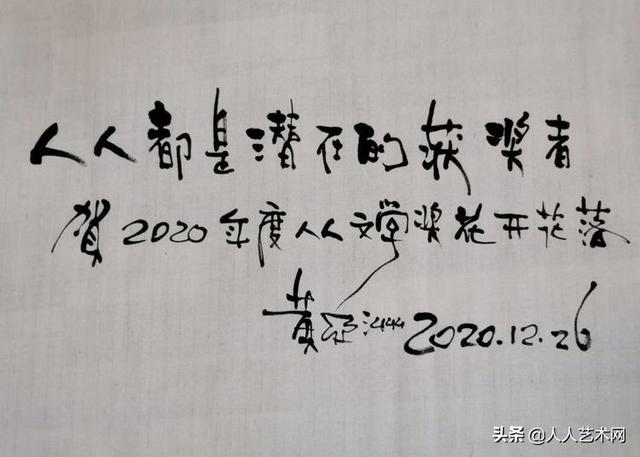 人人都是潜在的获奖者
贺2020年度人人文学奖花开花落
黄亚洲 2020.12.26
头条 @人人艺术网